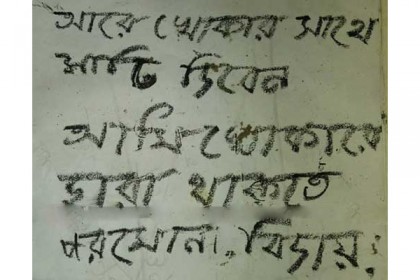 আরে খোকার সাথে
মাটি দিবেন
আমি খোকারে
ছারা থাকতে
পরমোনা. বিদায়.